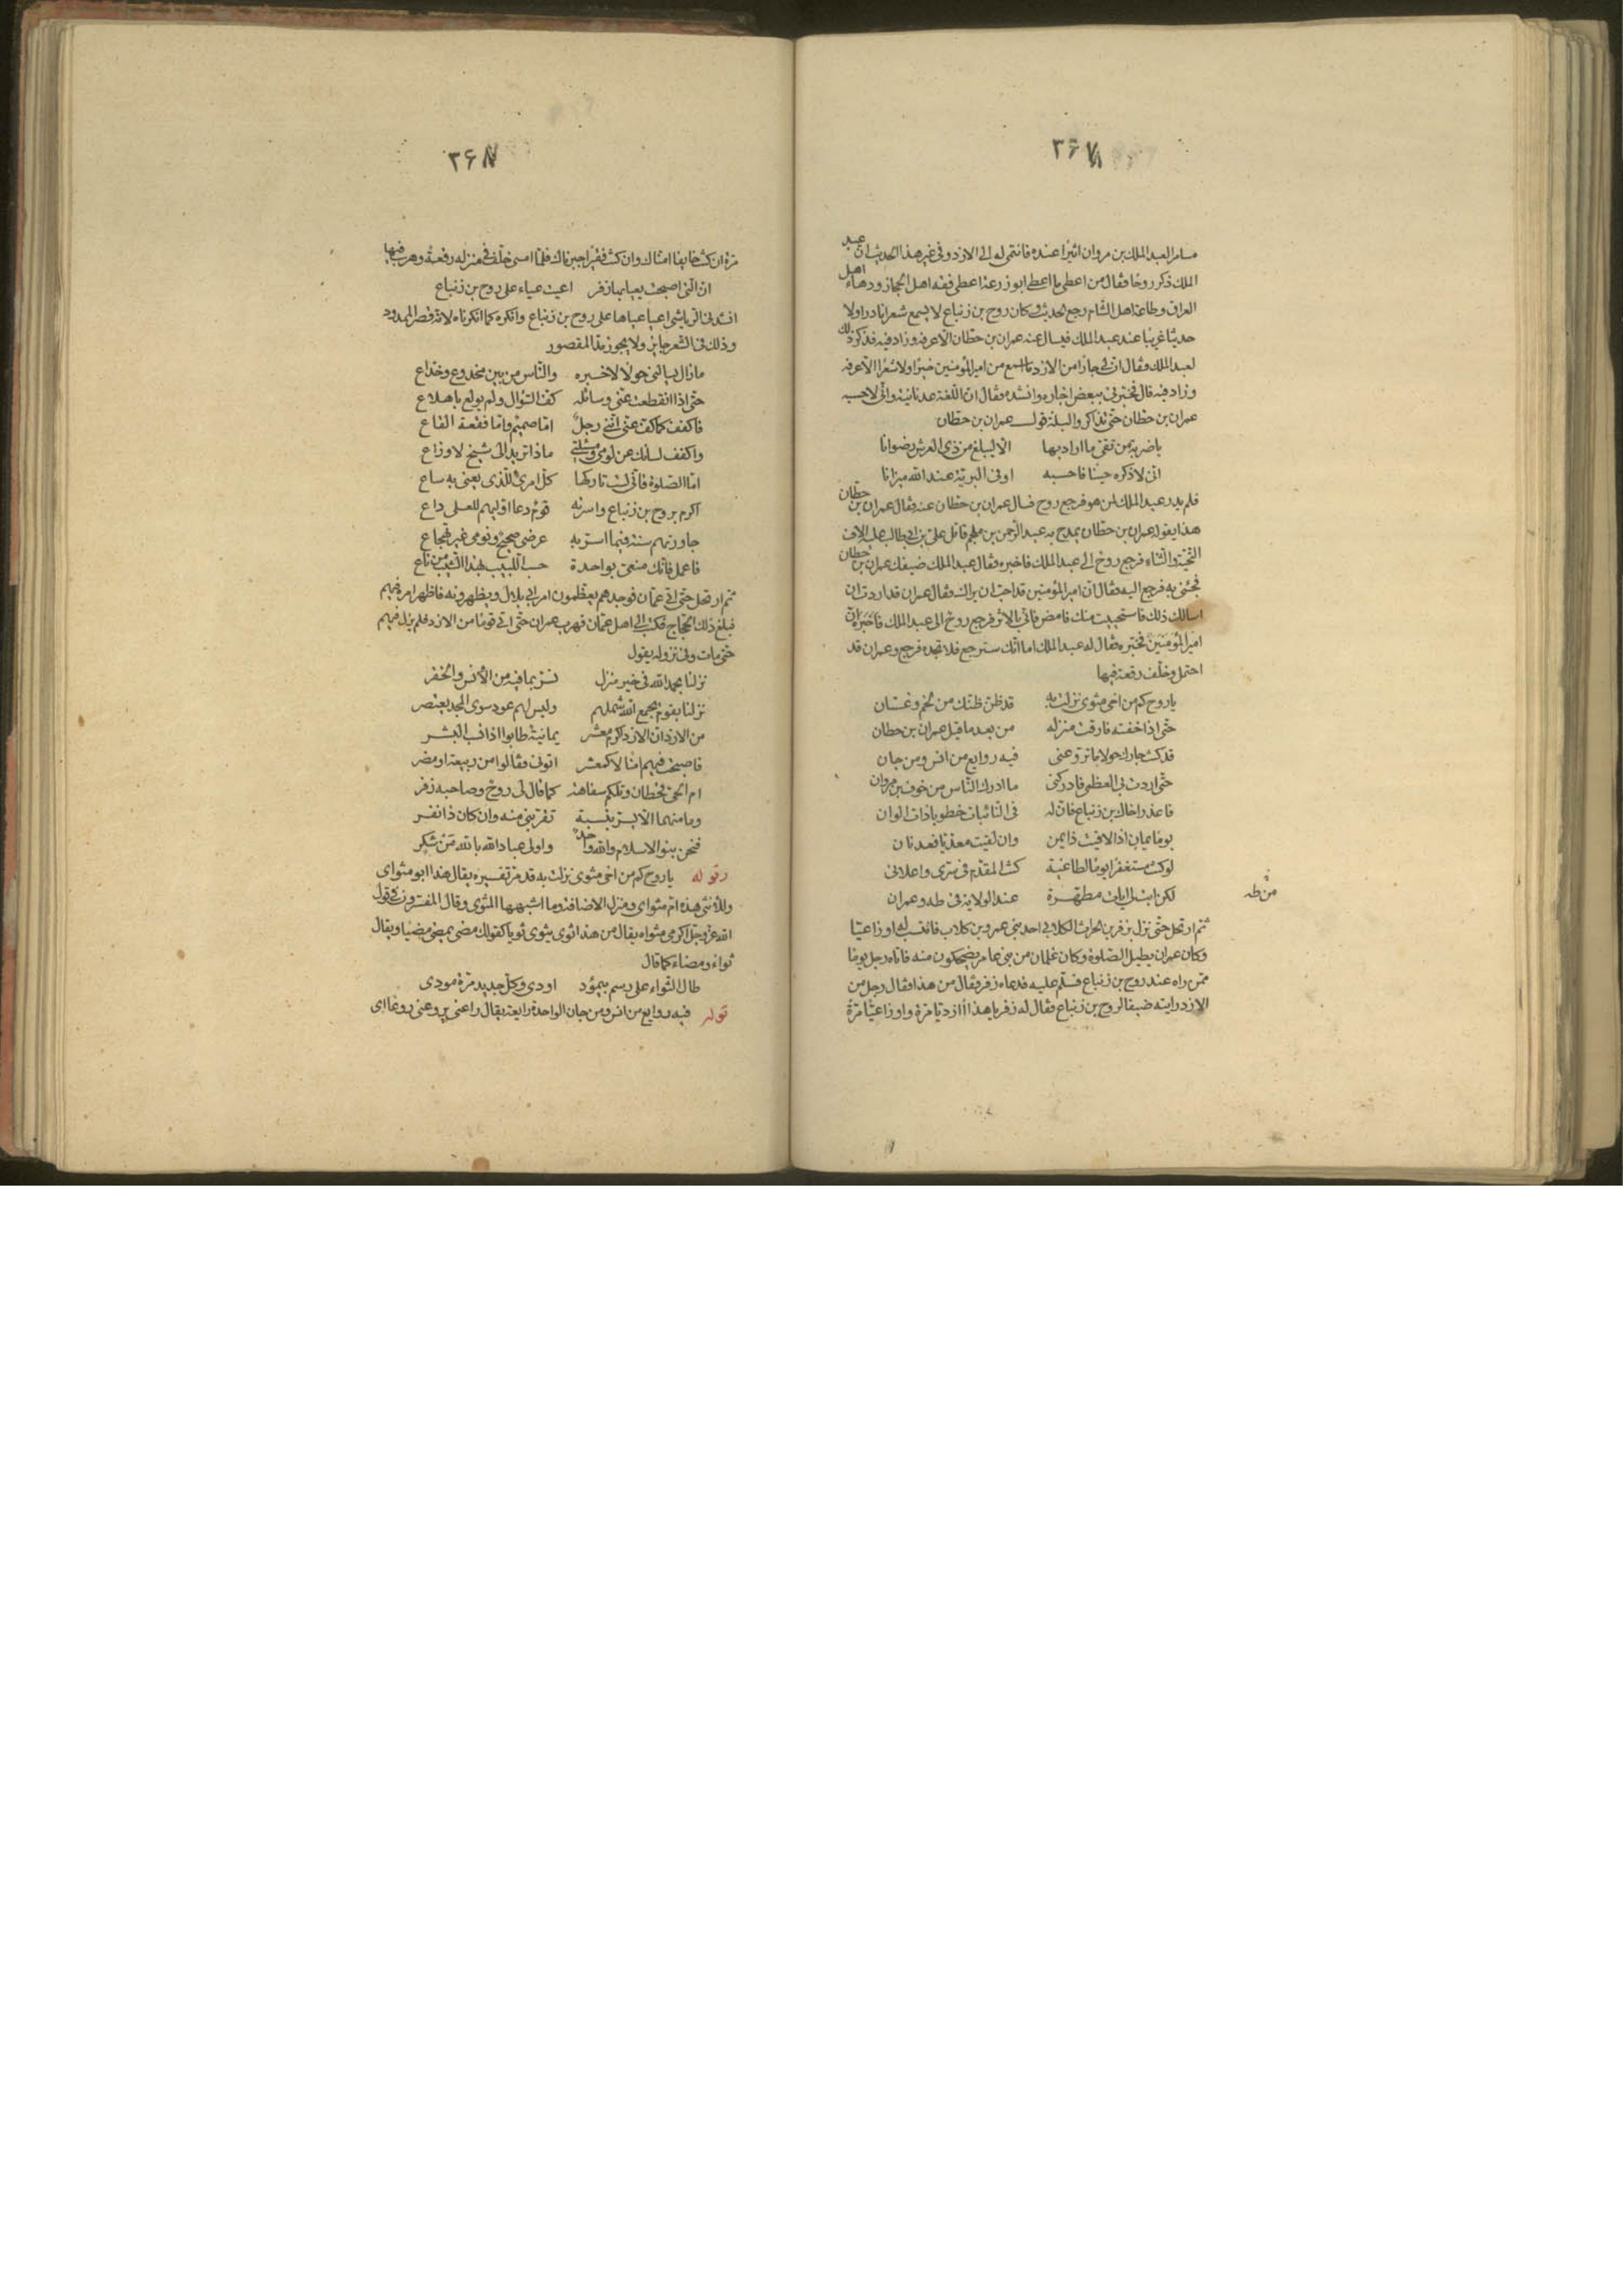 ٣۶٧
مسامرا لعبد الملك بن مروان اثيرا عنده فانتمى له الى الازد وفى غير هذا الحديث ان عبد
الملك ذكر روحا فقال من اعطى ما اعطى ابو زرعة اعطى فقه اهل الحجاز ودهاء اهل
العراق وطاعة اهل الشام رجع الحديث وكان روح بن زنباع لا يسمع شعرا نادرا ولا
حديثا غريبا عند عبد الملك فيسال عنه عمران بن حطان الا عرفه وزاد فيه فذكر ذلك
لعبد الملك وقال ان لى جارا من الازد ما اسمع من امير المؤمنين خبرا ولا شعرا الا عرفه
وزاد فيه قال فخبرنى ببعض اخباره وانشده فقال ان اللغة عدنانية وانى لاحسبه
عمران بن حطان حتى تذاكروا ليلة قول عمران بن حطان
يا ضربة من تقى ما اراد بها الا ليبلغ من ذى العرش رضوانا
انى لاذكره حينا فاحسبه اوفى البرية عند الله ميزانا
فلم يدر عبد الملك لمن هو فرجع روح فسال عمران بن حطان عنه فقال عمران بن حطان
هذا يقوله عمران بن حطان يمدح به عبد الرحمن بن ملجم قاتل على بن ابى طالب عليه الاف
التحية والثناء فرجع روح الى عبد الملك فاخبره فقال عبد الملك ضيفك عمران بن حطان
فجئنى به فرجع اليه فقال ان امير المؤمنين قد احب ان يراك فقال عمران قد اردت ان
اسالك ذلك فاستحييت منك فامض فانى بالاثر فرجع روح الى عبد الملك فاخبره ان
امير المؤمنين فخبره فقال له عبد الملك اما انك سترجع فلا تجده فرجع وعمران قد
احتمل وخلف رقعة فيها
يا روح كم من اخى مثوى نزلت به قد ظن ظنك من لخم وغسان
حتى اذا خفته فارقت منزله من بعد ما قيل عمران بن حطان
قد كنت جارك حولا ما تروعنى فيه روايع من انس ومن جان
حتى اردت بى العظمى فادركنى ما ادرك الناس من خوف بن مروان
فاعذر اخاك بن زنباع فان له فى النائبات خطوبا ذات الوان
يوما يمان اذا لاقيت ذا يمن وان لقيت معديا فعدنان
لو كنت مستغفرا يوما لطاغية كنت المقدم فى سرى واعلانى
لكن ابت لى ايات مطهرة عند الولاية فى طه وعمران
من طه
ثم ارتحل حتى نزل بزفر بن الحراث الكلابى احد بنى عمرو بن كلاب فانتسب له اوزاعيا
وكان عمران يطيل الصلوة وكان غلمان من بنى عامر يضحكون منه فاتاه رجل يوما
ممن راه عند روح بن زنباع فسلم عليه فدعاه زفر فقال من هذا فقال رجل من
الازد رايته ضيفا لروح بن زنباع فقال له زفر يا هذا ازديا مرة واوزاعيا مرة
٣۶٨
مرة ان كنت خايفا امناك وان كنت فقيرا جبرناك فلما امسى خلف فى منزله رقعة وهرب فيها
ان التى اصبحت يعيا بها زفر اعيت عياء على روح بن زنباع
انشدنى الرياشى اعيا عياها على روح بن زنباع وانكره كما انكرناه لانه قصر الممدود
وذلك فى الشعر جايز ولا يجوز مد المقصور
ما زال يسالنى حولا لاخبره والناس من بين مخدوع وخداع
حتى اذا انقطعت عنى وسائله كف السؤال ولم يولع باهلاع
فاكفف كما كف عنى اننى رجل اما صميم واما فقعة القاع
واكفف لسانك عن لومى ومسئلتى ماذا تريد الى شيخ لاوزاع
اما الصلوة فانى لست تاركها كل امرئ للذى يعنى به ساع
اكرم بروح بن زنباع واسرته قوم دعا اوليهم للعلى داع
جاورتهم سنة فيما اسر به عرضى صحيح ونومى غير تهجاع
فاعمل فانك منعى بواحدة حسب اللبيب بهذا الشيب من ناع
ثم ارتحل حتى اتى عمان فوجدهم يعظمون امر ابى بلال ويظهرونه فاظهر امره فيهم
فبلغ ذلك الحجاج فكتب الى اهل عمان فهرب عمران حتى اتى قوما من الازد فلم يزل فيهم
حتى مات وفى نزوله يقول
نزلنا بحمد الله فى خير منزل نسر بما فيه من الانس والخفر
نزلنا بقوم يجمع الله شملهم وليس لهم عود سوى المجد يعتصر
من الازد ان الازد اكرم معشر يمانية طابوا اذا نسب البشر
فاصبحت فيهم امنا لا كمعشر اتونى فقالوا من ربيعة او مضر
ام الحى قحطان وتلكم سفاهة كما قال لى روح وصاحبه زفر
وما منهما الا يسر بنسبة تقربنى منه وان كان ذا نفر
فنحن بنو الاسلام والله واحد واولى عباد الله بالله من شكر
وقوله يا روح كم من اخى مثوى نزلت به قد مر تفسيره يقال هذا ابو مثواى
وللانثى هذه ام مثواى ومنزل الاضافة وما اشبهها المثوى وقال المفسرون فى قول
الله عز وجل اكرمى مثواه يقال من هذا ثوى يثوى ثويا كقولك مضى يمضى مضيا ويقال
ثواء ومضاء كما قال
طال الثواء على رسم بيمؤد اودى وكل جديد مرة مودى
قوله فيه روايع من انس ومن جان الواحدة رايعة يقال راعنى يروعنى روعا اى